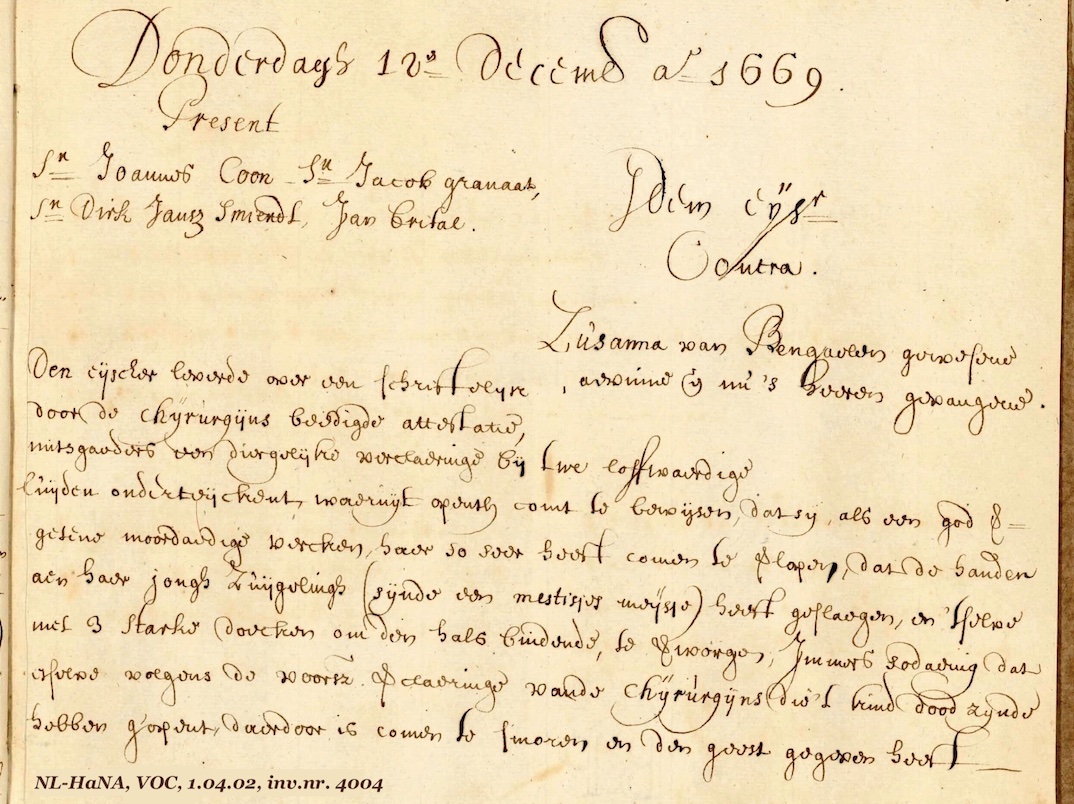 Donderdagh 12en Decemb ao 1669.
Present
Sr Joannes Coon Sr Jacob granaat,
Sr Dirk Jansz Smiendt, Jan Brital.
Idem eijsr
Contra.
Zusanna van Bengaelen gewesene
, aevinne en nu 's heeren gevangene.
Den eijscher leverde over een schriftelijke
door de Chijrurgijns beedigde attestatie,
mitsgaeders een diergelijke verclaeringe bij twe loffwaerdige
luijden onderteijckent, waeruijt openth comt te bewijsen, dat sij, als een god v=
getene moordaedige vercken, haer so seer heeft comen te vlopen, dat de handen
aen haer jongh Zuijgelingh (sijnde een mestisjes meijsje) heeft geslaegen, en 'tselve
met 3 starke doecken om den hals bindende, te vworgen, Immers sodaenig dat
etselve volgens de voorsz. vclaeringe vande Chijrurgijns die 't kind dood zijnde
hebben g'opent, daerdoor is comen te smoren en den geest gegeven heeft
NL-HaNA, VOC, 1.04.02, inv.nr. 4004